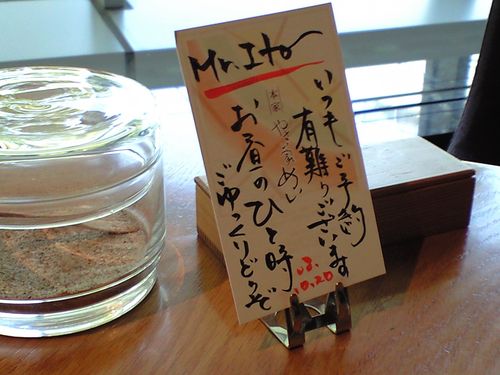 Mr. Ito
いつも ご予約
有難うございます
本家
めし
お昼のひと時
ごゆっくりどうぞ
10.20